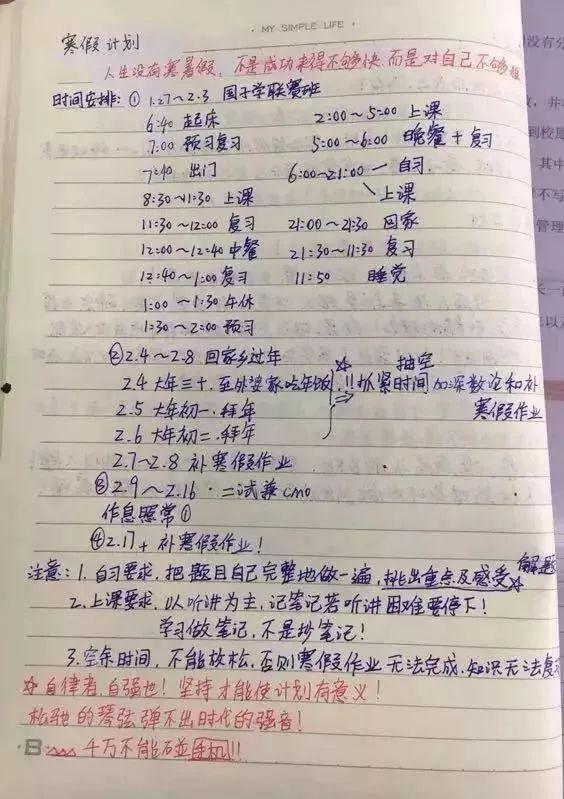 MY SIMPLE LIFE
寒假计划
人生没有寒暑假,不是成功来得不够快,而是对自己不够狠
时间安排:① 1.27~2.3 国子学联赛班
6:40 起床 2:00~5:00 上课
7:00 预习复习 5:00~6:00 晚餐+复习
7:40 出门 6:00~21:00 一 自习
8:30~11:30 上课 上课
11:30~12:00 复习 21:00~21:30 回家
12:00~12:40 中餐 21:30~11:30 复习
12:40~1:00 复习 11:50 睡觉
1:00~1:30 午休
1:30~2:00 预习
② 2.4~2.8 回家乡过年
抽空
2.4 大年三十,至外婆家吃年饭,!!抓紧时间 加深数论和补
2.5 大年初一,拜年 寒假作业
2.6 大年初二,拜年
2.7~2.8 补寒假作业
③ 2.9~2.16 · 二试兼cmo
作息照常①
④ 2.17+ 补寒假作业!
注意:1. 自习要求,把题目自己完整地做一遍,挑出重点及感受 解题
2. 上课要求,以听讲为主,记笔记若听讲困难要停下!
学习做笔记,不是抄笔记!
3. 空余时间,不能放松,否则寒假作业无法完成,知识无法复
☆ 自律者,自强也!坚持才能使计划有意义!
松驰的琴弦弹不出时代的强音!
B 千万不能碰手机!!
没有分
到校
其中
不写
管理